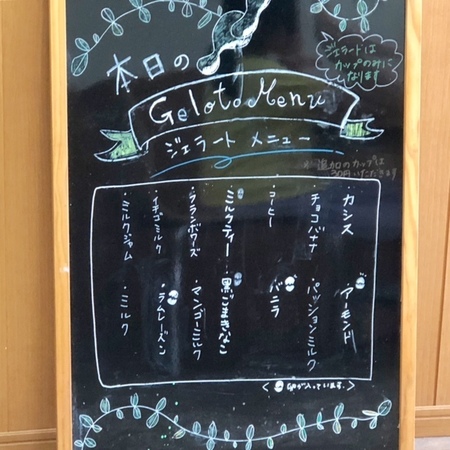 本日の
Geloto Menu
ジェラート メニュー
ジェラードは
カップのみに
なります
追加のカップは
30円いただきます
・カシス
・チョコバナナ
・コーヒー
・ミルクティー
・フランボワーズ
・イチゴミルク
・ミルクジャム
・アーモンド
・パッションミルク
・バニラ
・黒ごまきなこ
・マンゴーミルク
・ラムレーズン
・ミルク
< 卵が入っています。>